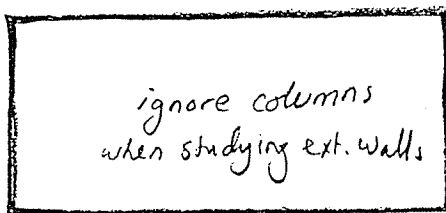 ignore columns
when studying ext. walls